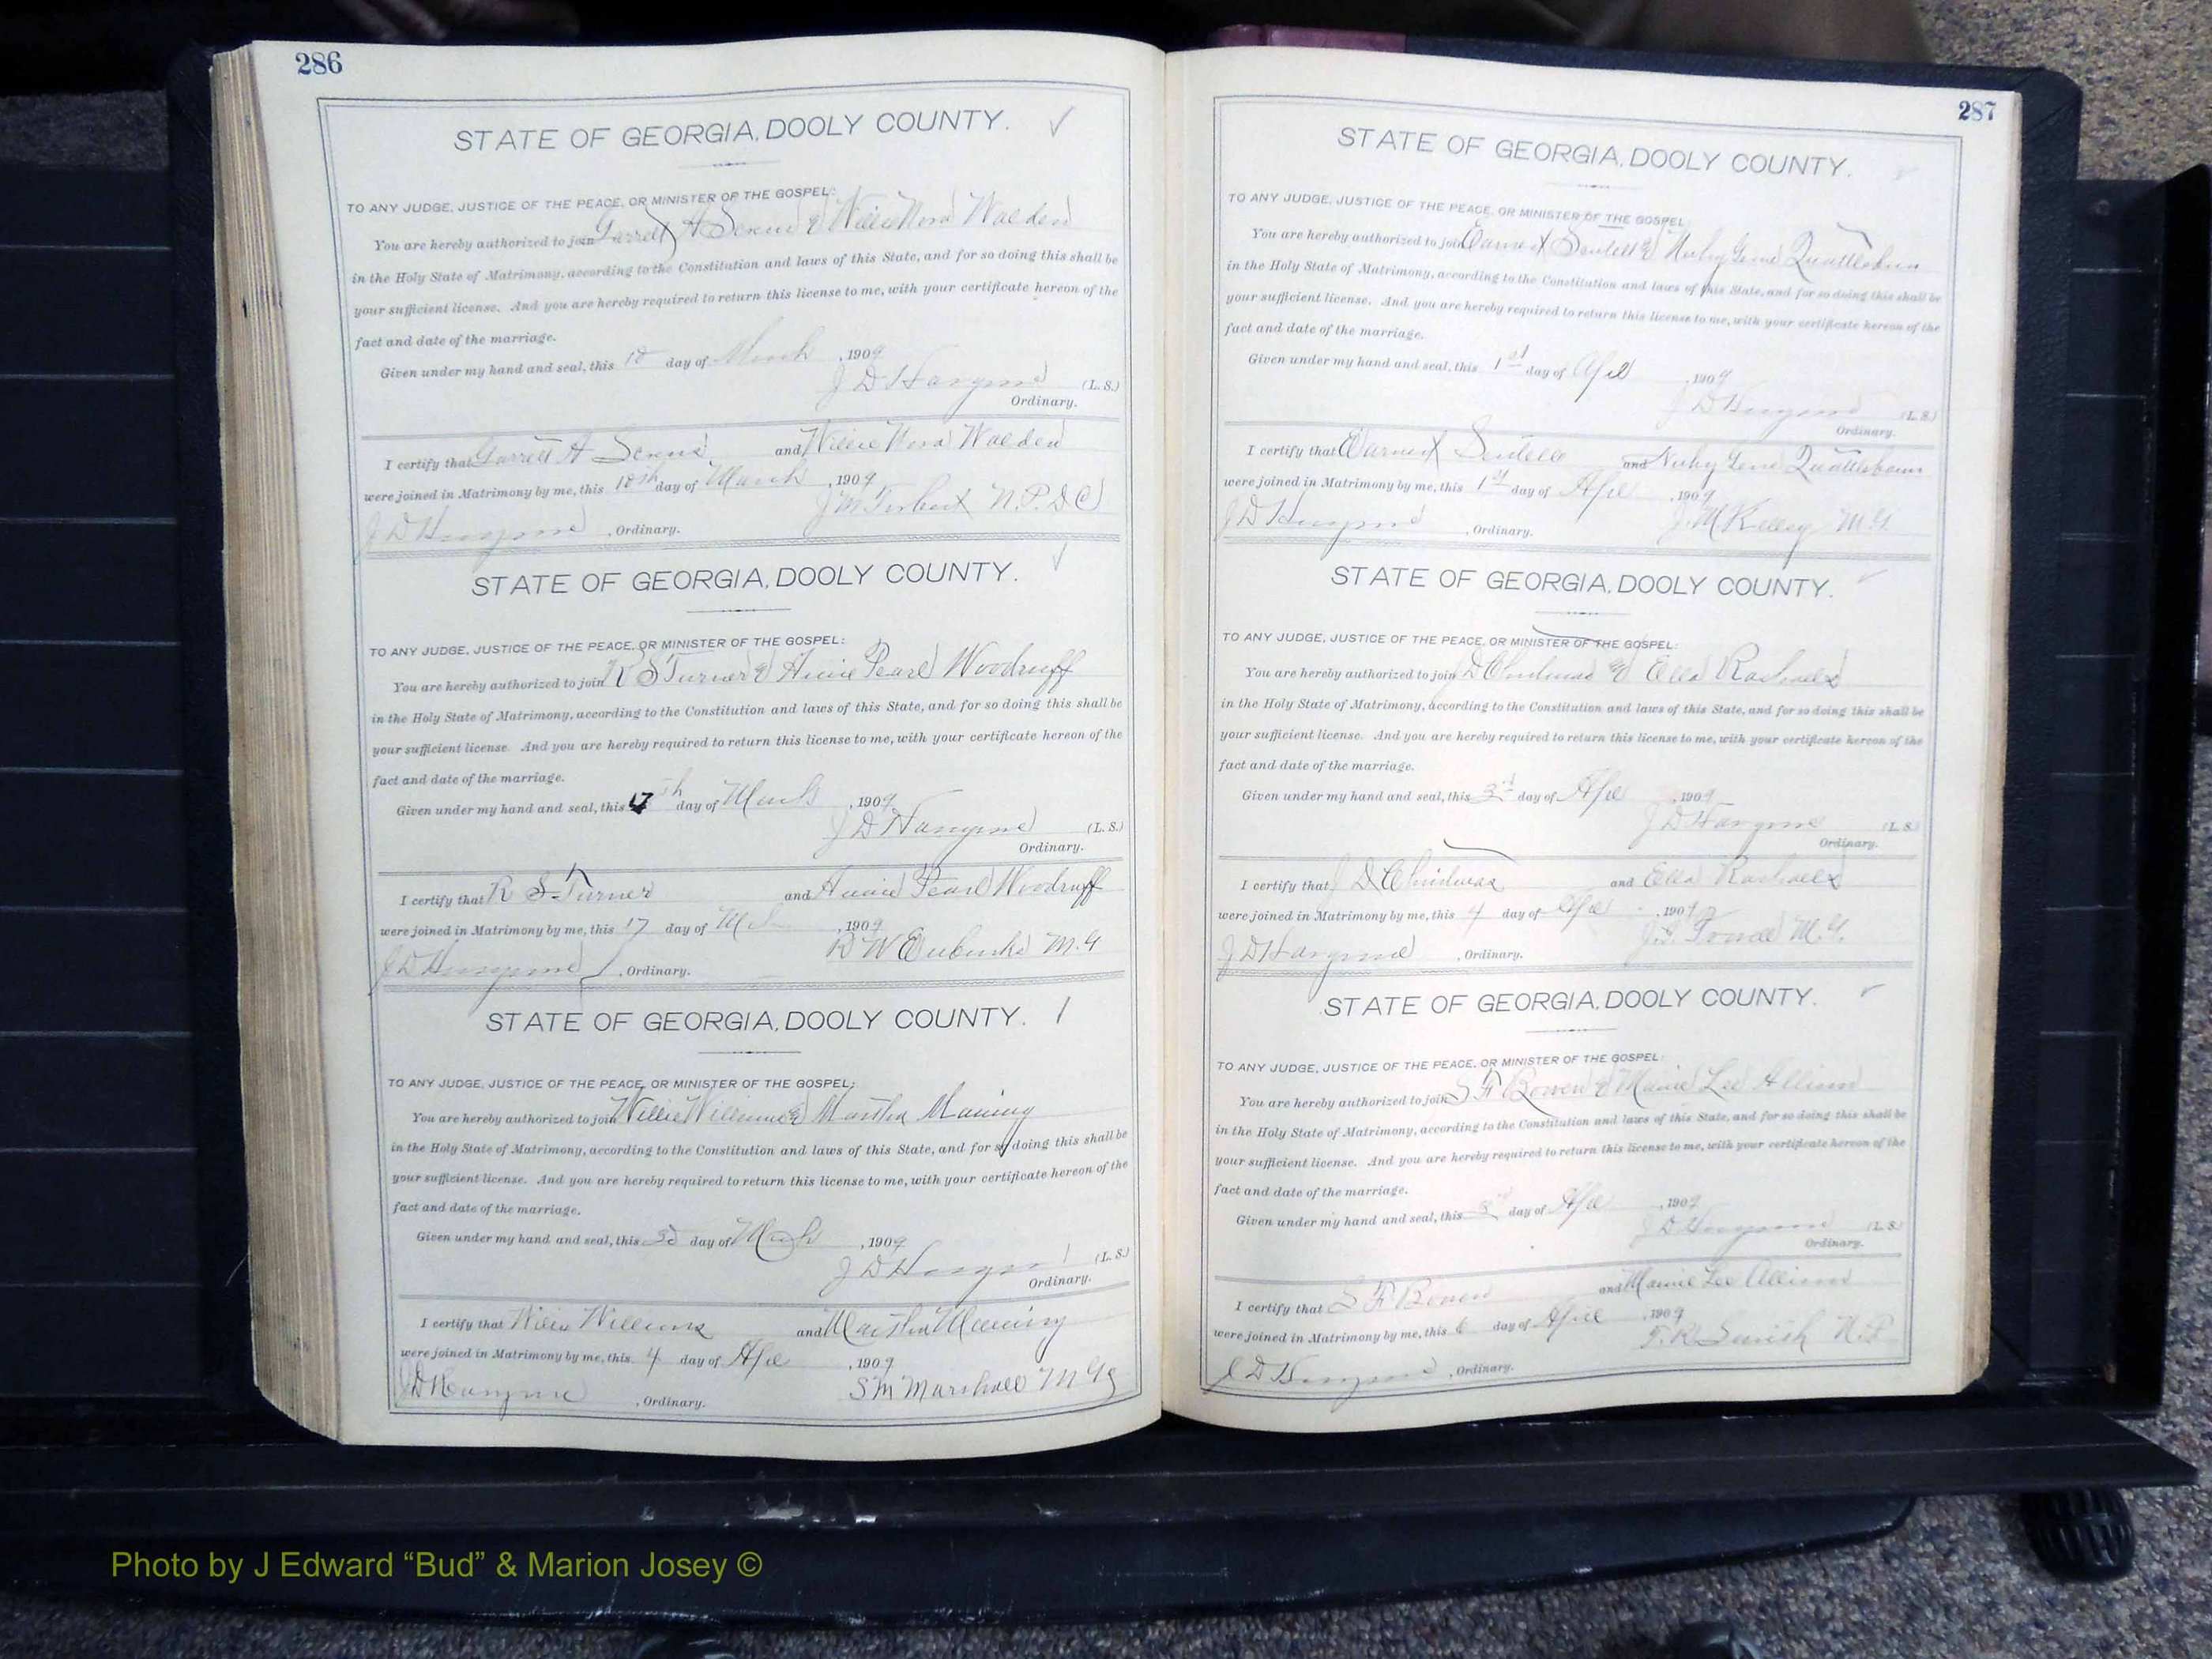 286
STATE OF GEORGIA, DOOLY COUNTY.
TO ANY JUDGE, JUSTICE OF THE PEACE, OR MINISTER OF THE GOSPEL:
You are hereby authorized to join Garrett A & Willie Walden
in the Holy State of Matrimony, according to the Constitution and laws of this State, and for so doing this shall be
your sufficient license. And you are hereby required to return this license to me, with your certificate hereon of the
fact and date of the marriage.
Given under my hand and seal, this 18 day of March, 1909
J D (L. S.)
Ordinary.
I certify that Garrett A and Willie Walden
were joined in Matrimony by me, this 18th day of March, 1909
J D , Ordinary. J M N. P. D C
STATE OF GEORGIA, DOOLY COUNTY.
TO ANY JUDGE, JUSTICE OF THE PEACE, OR MINISTER OF THE GOSPEL:
You are hereby authorized to join R S Turner & Pearl Woodruff
in the Holy State of Matrimony, according to the Constitution and laws of this State, and for so doing this shall be
your sufficient license. And you are hereby required to return this license to me, with your certificate hereon of the
fact and date of the marriage.
Given under my hand and seal, this 17th day of March, 1909
J D (L. S.)
Ordinary.
I certify that R S Turner and Pearl Woodruff
were joined in Matrimony by me, this 17 day of , 1909
J D , Ordinary. R W Eubanks M. G
STATE OF GEORGIA, DOOLY COUNTY.
TO ANY JUDGE, JUSTICE OF THE PEACE, OR MINISTER OF THE GOSPEL:
You are hereby authorized to join Willie Williams & Martha
in the Holy State of Matrimony, according to the Constitution and laws of this State, and for so doing this shall be
your sufficient license. And you are hereby required to return this license to me, with your certificate hereon of the
fact and date of the marriage.
Given under my hand and seal, this 30 day of March, 1909
J D (L. S.)
Ordinary.
I certify that Willie Williams and Martha
were joined in Matrimony by me, this 4 day of Apl, 1909
J D , Ordinary. S M Marshall M G
287
STATE OF GEORGIA, DOOLY COUNTY.
TO ANY JUDGE, JUSTICE OF THE PEACE, OR MINISTER OF THE GOSPEL:
You are hereby authorized to join Sentell & Quattlebum
in the Holy State of Matrimony, according to the Constitution and laws of this State, and for so doing this shall be
your sufficient license. And you are hereby required to return this license to me, with your certificate hereon of the
fact and date of the marriage.
Given under my hand and seal, this 1st day of April, 1909
J D (L. S.)
Ordinary.
I certify that Sentell and Quattlebaum
were joined in Matrimony by me, this 1st day of Apl, 1909
J D , Ordinary. J. M Kelley M. G.
STATE OF GEORGIA, DOOLY COUNTY.
TO ANY JUDGE, JUSTICE OF THE PEACE, OR MINISTER OF THE GOSPEL:
You are hereby authorized to join J D & Ella
in the Holy State of Matrimony, according to the Constitution and laws of this State, and for so doing this shall be
your sufficient license. And you are hereby required to return this license to me, with your certificate hereon of the
fact and date of the marriage.
Given under my hand and seal, this 3rd day of Apl, 1909
J D (L. S.)
Ordinary.
I certify that J D and Ella
were joined in Matrimony by me, this 4 day of Apl, 1909
J D , Ordinary. M. G.
STATE OF GEORGIA, DOOLY COUNTY.
TO ANY JUDGE, JUSTICE OF THE PEACE, OR MINISTER OF THE GOSPEL:
You are hereby authorized to join S F Bowen & Mamie Lee Allison
in the Holy State of Matrimony, according to the Constitution and laws of this State, and for so doing this shall be
your sufficient license. And you are hereby required to return this license to me, with your certificate hereon of the
fact and date of the marriage.
Given under my hand and seal, this 3rd day of Apl, 1909
J D (L. S.)
Ordinary.
I certify that S F Bowen and Mamie Lee Allison
were joined in Matrimony by me, this 6 day of April, 1909
J D , Ordinary. Smith N. P
Photo by J Edward “Bud” & Marion Josey ©